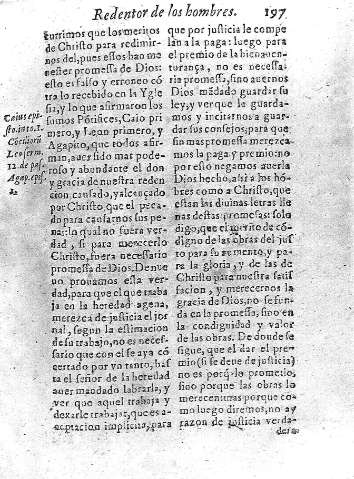 Redentor de los hombres. 197
currimos que los meritos
de Christo para redimir-
nos del, pues essos han me
nester promessa de Dios:
esto es falso y erroneo cō
tra lo recebido en la Ygle
sia, y lo que afirmaron los
sumos Pōtifices, Caio pri
mero, y Leon primero, y
Agapito, que todos afir-
man, auer sido mas pode-
roso y abundante el don
y gracia de nuestra reden
cion, causado, y alcançado
por Christo que el peca-
do para causarnos sus pe-
nas: lo qual no fuera ver-
dad, si para merecerlo
Christo, fuera necessario
promessa de Dios. De nue
uo prouamos esta ver-
dad, para que el que traba
ja en la heredad agena,
merezca de justicia el jor
nal, segun la estimacion
de su trabajo, no es neces-
sario que con el se aya cō
certado por vn tanto, bas
ta el señor de la heredad
auer mandado labrarla, y
ver que aquel trabaja y
dexarle trabajar, que es a-
ceptacion implicita, para
Caius epi-
sto in to. 1.
Leo serm.
12 de pas.
Agap. epis.
que por justicia le compe
lan a la paga: luego para
el premio de la bienauen-
turança, no es necessa-
ria promessa, sino auernos
Dios mādado guardar su
ley, y ver que le guarda-
mos y incitarnos a guar-
dar sus consejos, para que
sin mas promessa merezca
mos la paga y premio: no
por esso negamos auerla
Dios hecho, assi a los hō
bres como a Christo, que
estan las diuinas letras lle
nas destas promesas: solo
digo, que el merito de cō
digno de las obras del jus
to para su aumento, y pa-
ra la gloria, y de las de
Christo para nuestra satis
facion, y merecernos la
gracia de Dios, no se fun-
da en la promessa, sino en
la condignidad y valor
de las obras. De donde se
sigue, que el dar el pre-
mio (si se deue de justicia)
no es porq̄ lo prometio,
sino porque las obras lo
merecen: mas porque co-
mo luego diremos, no ay
razon de justicia verda-
dera